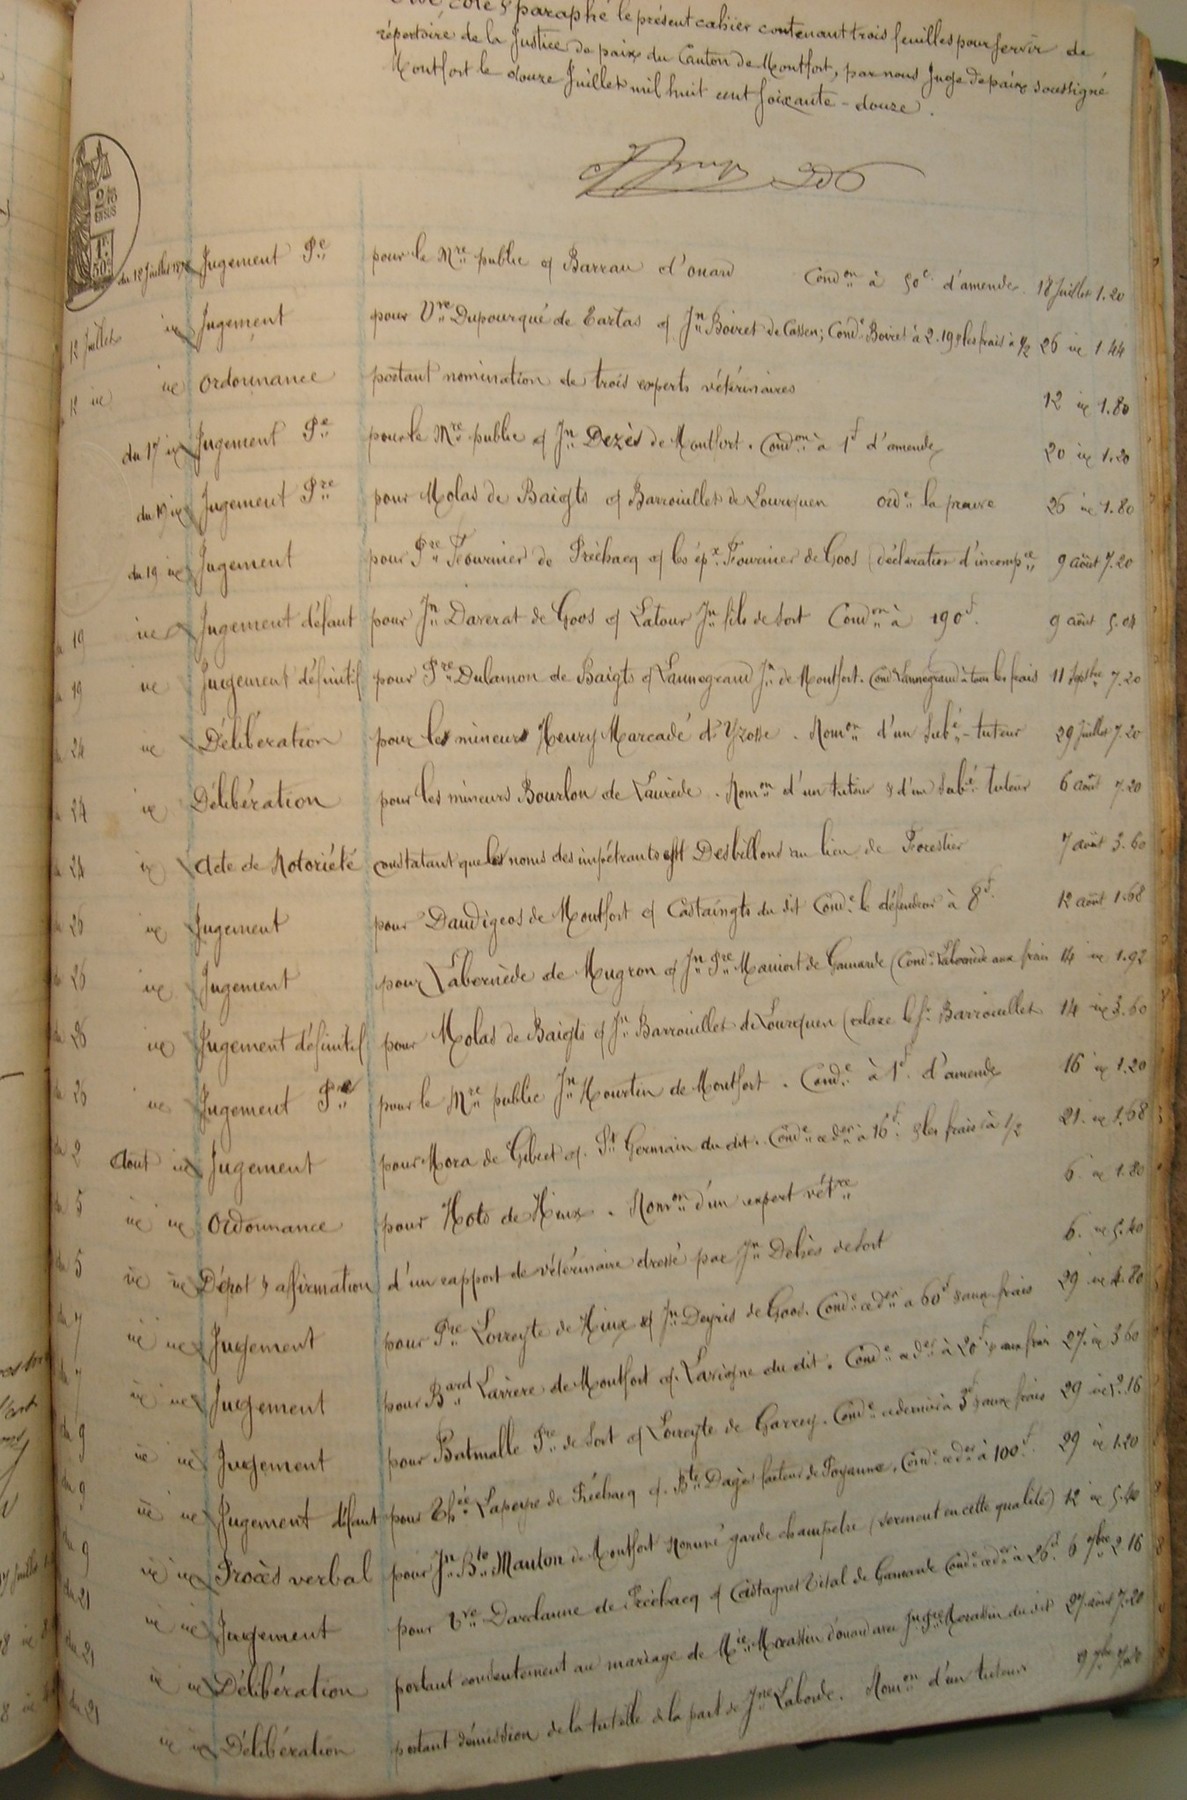 coté & paraphé le présent cahier contenant trois feuilles pour servir de
répertoire de la Justice de paix du Canton de Montfort, par nous Juge de paix soussigné
Montfort le douze Juillet mil huit cent soixante-douze.
2 10
EN SUS
1F
50c
du 12 Juillet Jugement Pre pour le Mre public cf Barrau d'onard Condon à 50c d'amende 18 Juillet 1.20
12 Juillet ie Jugement pour Vre Dupourqué de Tartas cf Jn Boiret de Cassen; Condé Boiret à 2.19 & les frais à 1/2 26 ie 1.44
12 ie ie Ordonnance portant nomination de trois experts vétérinaires 12 ie 1.80
du 17 ie Jugement Pre pour le Mre public cf Jn Dezès de Montfort. Condon à 1f d'amende 20 ie 1.20
du 19 ie Jugement Pre pour Molas de Baigts cf Barrouillet de Lourquen ordé la preuve 26 ie 1.80
du 19 ie Jugement pour Pre Fournier de Préchacq cf les épx Fournier de Goos (déclaration d'incompce 9 août 7.20
du 19 ie Jugement défaut pour Jn Daverat de Goos cf Latour Jn fils de Sort Condon à 190f. 9 août 5.04
du 19 ie Jugement définitif pour Pre Dulamon de Baigts cf Lannegrand Jn de Montfort. Condé Lannegrand à tous les frais 11 Septbre 7.20
du 24 ie Délibération pour les mineurs Henry Marcadé d'Yzosse. Nomon d'un subé-tuteur 29 Juillet 7.20
du 24 ie Délibération pour les mineurs Bourlon de Laurède. Nomon d'un tuteur & d'un subé-tuteur 6 août 7.20
du 24 ie Acte de Notoriété constatant que les noms des impétrants est Desbillons au lieu de Forestier 7 août 3.60
du 26 ie Jugement pour Daudigeos de Montfort cf Castaingts du dit Condé le défendeur à 8f. 12 août 1.68
du 26 ie Jugement pour Labernède de Mugron cf Jn Pre de Gamarde (Condé Labernède aux frais 14 ie 1.92
du 26 ie Jugement définitif pour Molas de Baigts cf Jn Barrouillet de Lourquen (relaxe le Sr Barrouillet 14 ie 3.60
du 26 ie Jugement Pre pour le Mre public Jn Hourtin de Montfort. Condé à 1f. d'amende 16 ie 1.20
du 2 Aout ie Jugement pour Mora de Gibret cf. St Germain du dit. Condé ce der à 16f. & les frais à 1/2 21 ie 1.68
du 5 ie ie Ordonnance pour Hots de Hinx. Nomon d'un expert vétre 6 ie 1.80
du 5 ie ie Dépot & affirmation d'un rapport de vétérinaire dressé par Jn Dehès de Sort 6 ie 5.40
du 7 ie ie Jugement pour Pre Loreyte de Hinx cf Jn Deyris de Goos. Condé ce der à 60f & aux frais 29 ie 4.80
du 7 ie ie Jugement pour Bard Larrere de Montfort cf. Lavigne du dit. Condé ce der à 20f & aux frais 27 ie 3.60
du 9 ie ie Jugement pour Batmalle Pre de Sort cf Loreyte de Garrey. Condé ce dernier à 3f & aux frais 29 ie 2.16
du 9 ie ie Jugement défaut pour Thée Lapeyre de Préchacq cf. Bte Dagès facteur de Poyanne. Condé ce der à 100f. 29 ie 1.20
du 9 ie ie Procès verbal pour Jn Bte Mauton de Montfort nommé garde champetre (serment en cette qualité) 12 ie 5.40
du 21 ie ie Jugement pour Vve Darclanne de Préchacq cf Castagnet Vital de Gamarde Condé ce der à 26f 6 7bre 2.16
du 21 ie ie Délibération portant consentement au mariage de Mie Morassin d'onard avec Jn Pre Morassin du dit 27 août 7.20
du 21 ie ie Délibération portant démission de la tutelle de la part de Jne Laborde. Nomon d'un tuteur 9 7bre